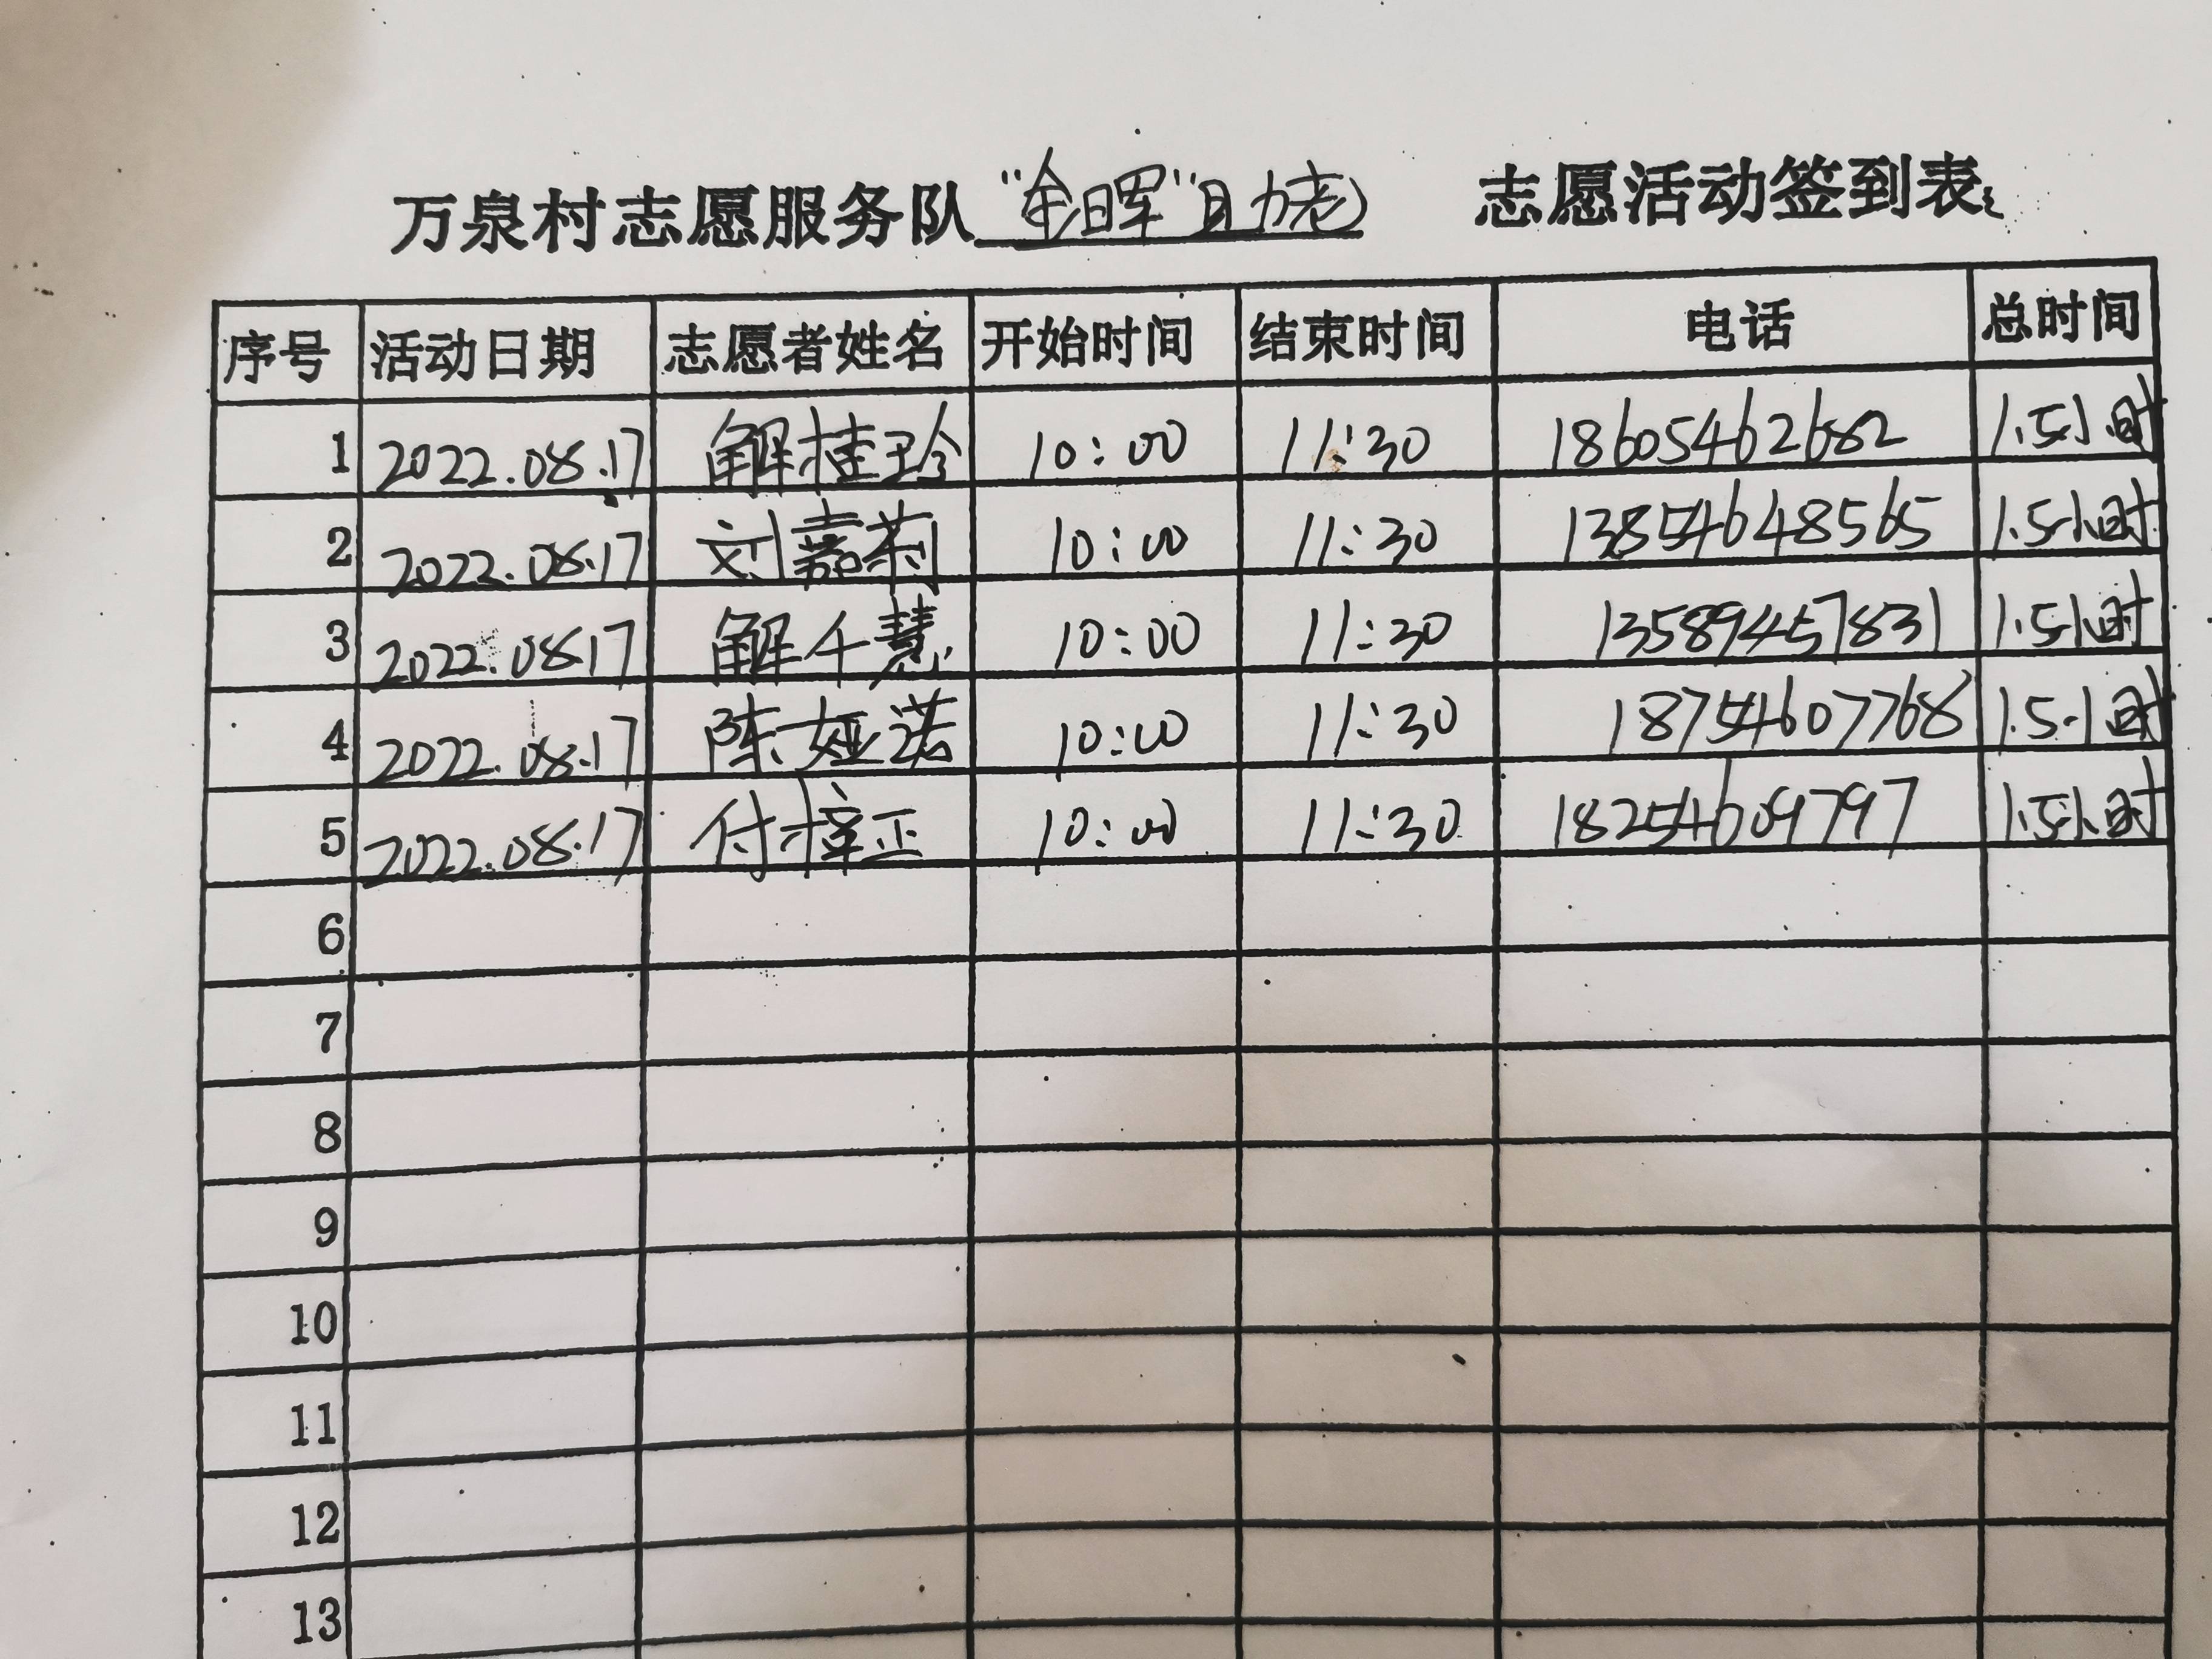 万泉村志愿服务队“金晖”助老 志愿活动签到表
序号 活动日期 志愿者姓名 开始时间 结束时间 电话 总时间
1 2022.08.17 解桂玲 10:00 11:30 18605462682 1.5小时
2 2022.08.17 刘嘉莉 10:00 11:30 13854648565 1.5小时
3 2022.08.17 解千慧 10:00 11:30 13589457831 1.5小时
4 2022.08.17 陈娅诺 10:00 11:30 18754607768 1.5小时
5 2022.08.17 付梓正 10:00 11:30 18254609797 1.5小时
6
7
8
9
10
11
12
13